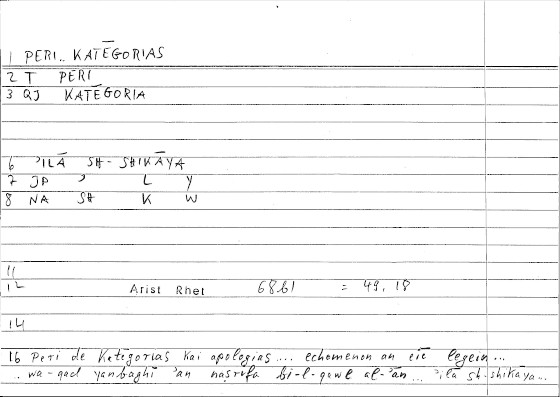 1 PERI.. KATĒGORIAS
2 T PERI
3 QJ KATĒGORIA
6 ʾILĀ SH-SHIKĀYA
7 JP ʾ L Y
8 NA SH K W
11
12 Arist Rhet 68b1 = 49,18
14
16 Peri de Katēgorias kai apologias.... echomenon an eiē legein...
. wa-qad yanbaghī ʾan naṣrifa bi-l-qawl al-ʾān... ʾilā sh-shikāya...